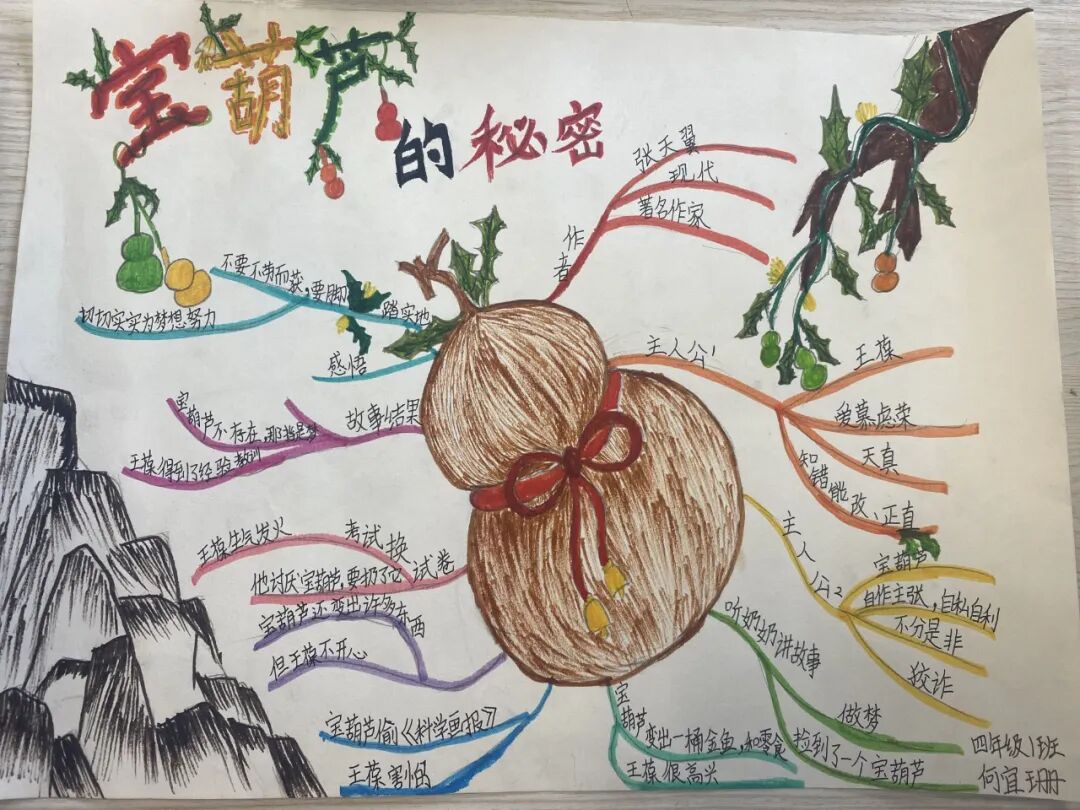 宝葫芦
的秘密
作者
张天翼
现代
著名作家
主人公1
王葆
爱慕虚荣
天真
知错能改、正直
主人公2
宝葫芦
自作主张，自私自利
不分是非
狡诈
听奶奶讲故事
做梦
捡到了一个宝葫芦
宝葫芦变出一桶金鱼，和零食
王葆很高兴
宝葫芦偷《科学画报》
王葆害怕
宝葫芦还变出许多东西
但王葆不开心
考试换试卷
王葆生气发火
他讨厌宝葫芦，要扔了它
故事结果
宝葫芦不存在，那当是梦
王葆得到了经验教训
感悟
不要不劳而获，要脚踏实地
切切实实为梦想努力
四年级1班
何宜珊